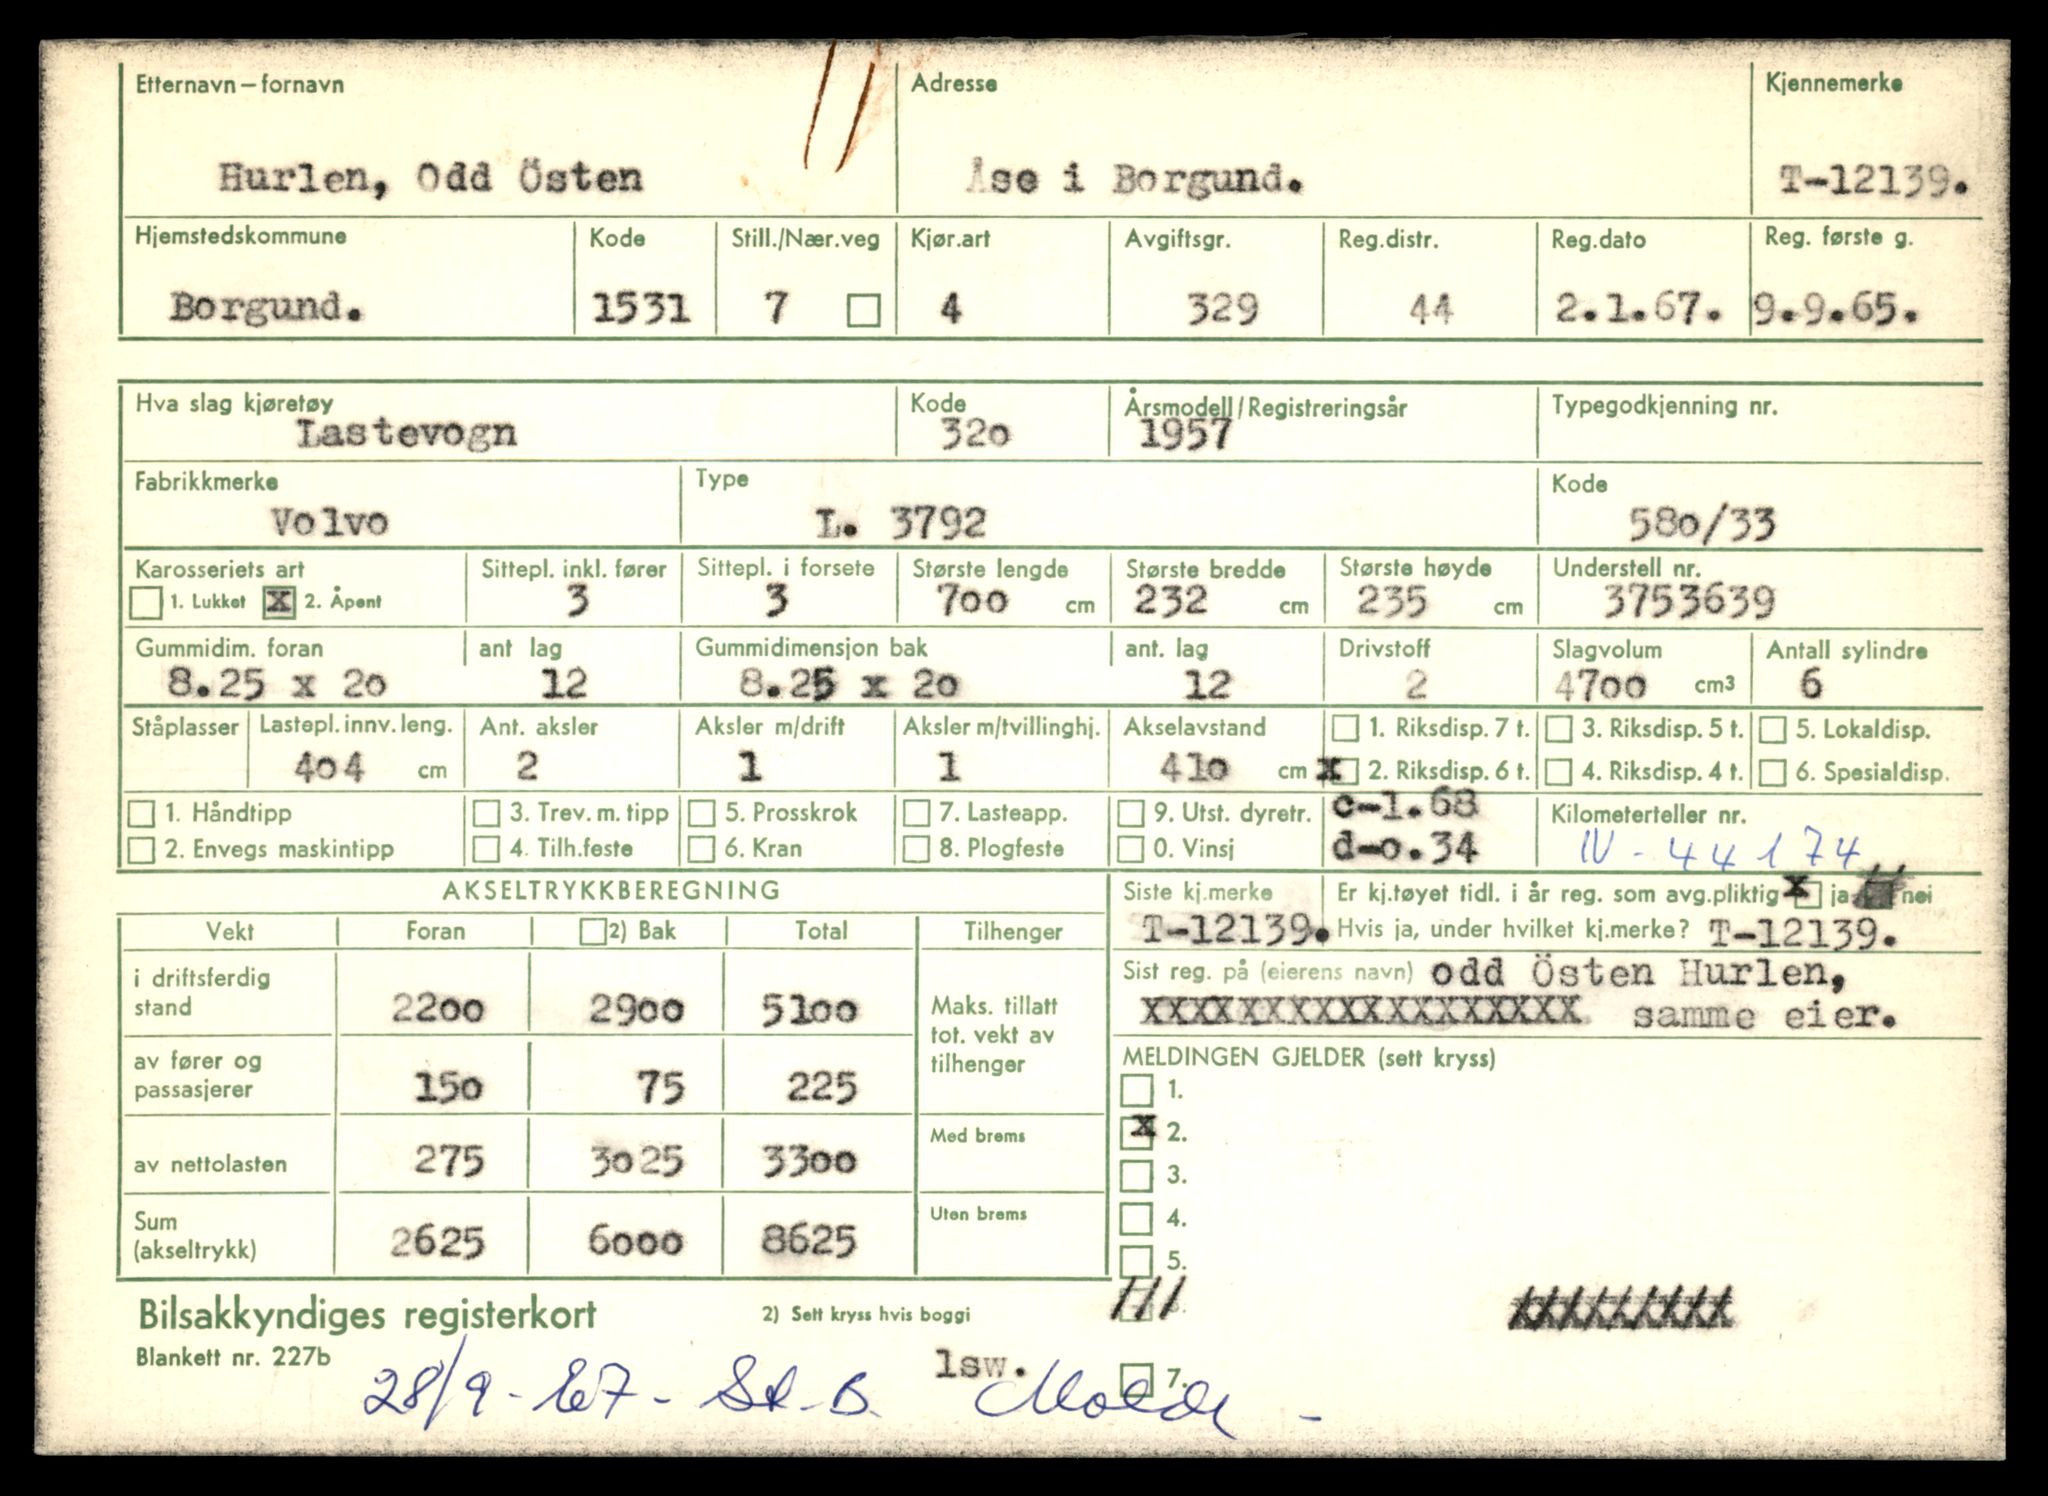 Etternavn – fornavn Adresse Kjennemerke
Hurlen, Odd Östen Åse i Borgund. T-12139.
Hjemstedskommune Kode Still./Nær.veg Kjør.art Avgiftsgr. Reg.distr. Reg.dato Reg. første g.
Borgund. 1531 7 4 329 44 2.1.67. 9.9.65.
Hva slag kjøretøy Kode Årsmodell/Registreringsår Typegodkjenning nr.
Lastevogn 320 1957
Fabrikkmerke Type Kode
Volvo L. 3792 580/33
Karosseriets art Sittepl. inkl. fører Sittepl. i forsete Største lengde Største bredde Største høyde Understell nr.
1. Lukket x 2. Åpent 3 3 700 cm 232 cm 235 cm 3753639
Gummidim. foran ant lag Gummidimensjon bak ant. lag Drivstoff Slagvolum Antall sylindre
8.25 x 20 12 8.25 x 20 12 2 4700 cm3 6
Ståplasser Lastepl. innv. leng. Ant. aksler Aksler m/drift Aksler m/tvillinghj. Akselavstand 1. Riksdisp. 7 t. 3. Riksdisp. 5 t. 5. Lokaldisp.
404 cm 2 1 1 410 cm x 2. Riksdisp. 6 t. 4. Riksdisp. 4 t. 6. Spesialdisp.
1. Håndtipp 3. Trev. m. tipp 5. Prosskrok 7. Lasteapp. 9. Utst. dyretr. c-1.68 Kilometerteller nr.
2. Envegs maskintipp 4. Tilh.feste 6. Kran 8. Plogfeste 0. Vinsj d-0.34 IV - 44174
AKSELTRYKKBEREGNING Siste kj.merke Er kj.tøyet tidl. i år reg. som avg.pliktig x ja nei
Vekt Foran 2) Bak Total Tilhenger T-12139. Hvis ja, under hvilket kj.merke? T-12139.
i driftsferdig stand 2200 2900 5100 Maks. tillatt tot. vekt av tilhenger Sist reg. på (eierens navn) odd Östen Hurlen,
XXXXXXXXXXXXXXXXXX samme eier.
av fører og passasjerer 150 75 225 MELDINGEN GJELDER (sett kryss)
1.
av nettolasten 275 3025 3300 Med brems x 2.
3.
Sum (akseltrykk) 2625 6000 8625 Uten brems 4.
5.
Bilsakkyndiges registerkort 2) Sett kryss hvis boggi
Blankett nr. 227b lsw. 7.
28/9-67 - St. B. Molde -